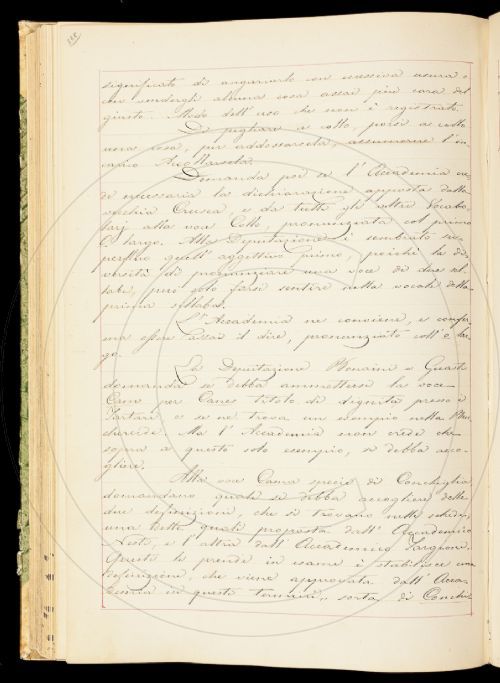 significato di angariarlo con eccessiva usura o
con vendergli alcuna cosa assai più cara del
giusto. Modo dell'uso che non è registrato.
Di pigliare a collo, porsi a collo
una cosa, per addossarsela, assumerne l'in
carico Accollarsela.
Domanda poi se l'Accademia cre
de necessaria la dichiarazione apposta dalla
vecchia Crusca, e da tutti gli altri Vocabo
larj alla voce Collo, pronunziata col primo
O largo. Alla Deputazione è sembrato su
perfluo quell'aggettivo primo, poichè la di
versità di pronunziare una voce di due sil
labe, può solo farsi sentire nella vocale della
prima sillaba.
L'Accademia ne conviene, e confer
ma essere assai il dire, pronunziato coll'o lar
go.
La Deputazione Bonaini e Guasti
domanda se debba ammettersi la voce
Cane per Canes titolo di dignità presso i
Tartari e se ne trova un esempio nella
Ma l'Accademia non crede che
sopra a questo solo esempio, si debba acco
gliere.
Alla voce Cama specie di Conchiglia
domandano quale si debba accogliere delle
due definizioni, che si trovano nelle schede,
una delle quali proposta dall'Accademico
Nesti, e l'altra dall'Accademico Targioni.
Questa si prende in esame e stabilisce una
definizione, che viene approvata dall'Acca
demia in questi termini, sorta di Conchi